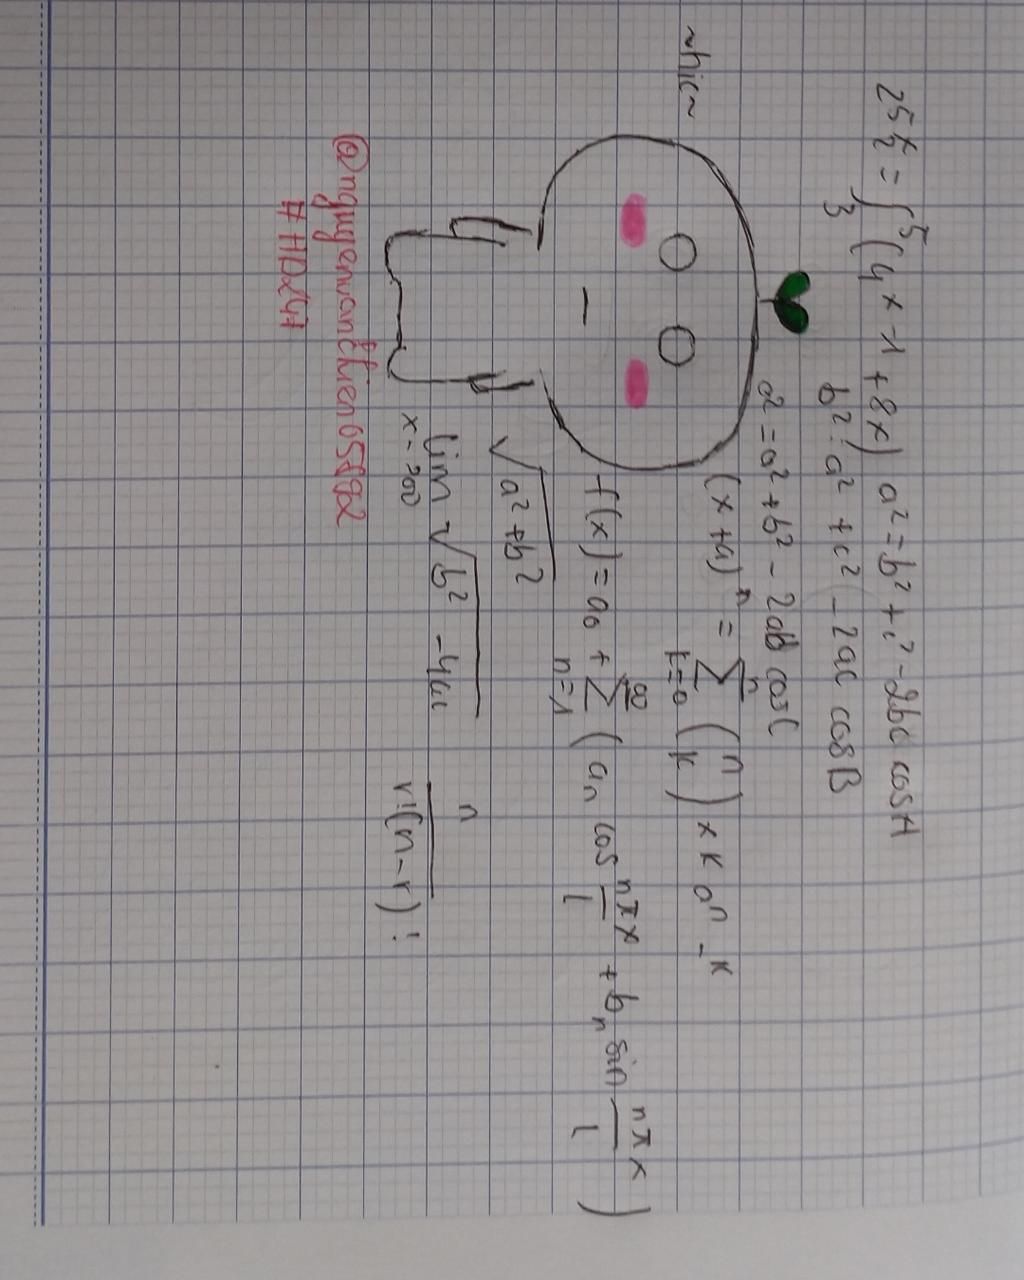 ~hic~
25 x/2 = ∫₃⁵ (4x1 + 8x) a² = b² + c² - 2bc cosA
b² = a² + c² - 2ac cosB
c² = a² + b² - 2ab cosC
(x + a)ⁿ = ∑ₖ₌₀ⁿ (n k) xk aⁿ-k
f(x) = a₀ + ∑ₙ₌₁^∞ (aₙ cos nπx/l + bₙ sin nπx/l)
√a² + b²
lim x->∞ √b² - 4ac n/r!(n-r)!
@nguyenvanchien05892
#HD247